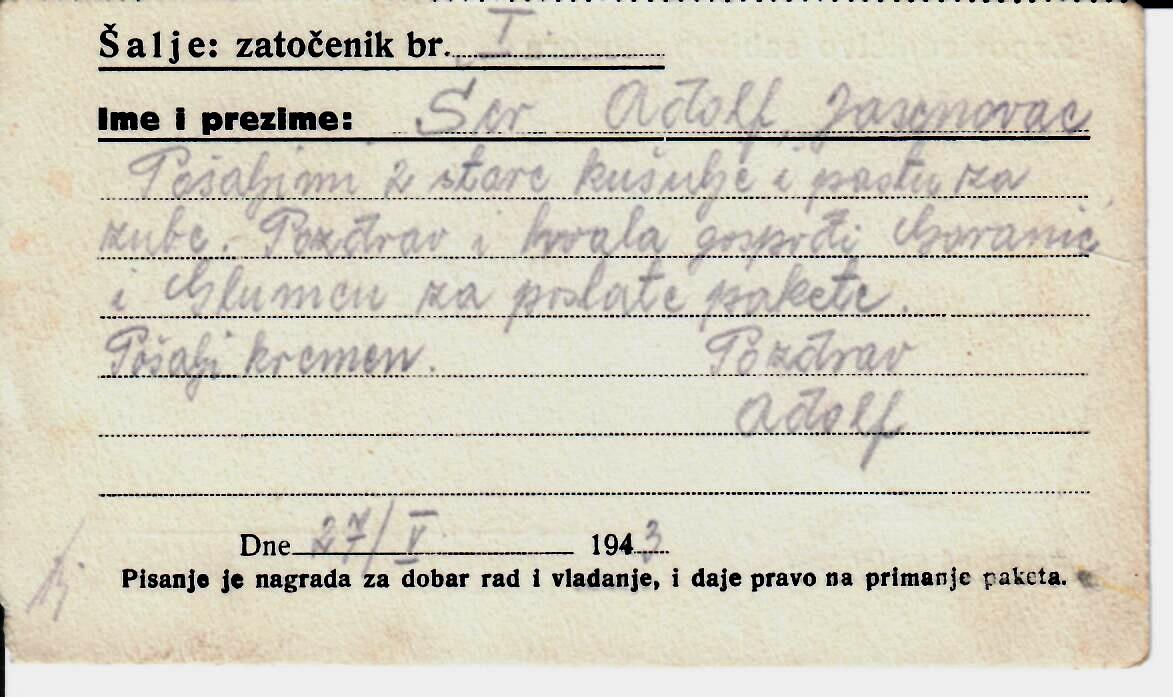 Šalje: zatočenik br. I
Ime i prezime: Scr Adolf, Jasenovac
Pošalji mi 2 stare kušulje i pastu za
zube. Pozdrav i hvala gosprđi Goranić
i Glumcu za poslate pakete.
Pošalji kremen. Pozdrav
Adolf
Dne 27/V 1943
Pisanje je nagrada za dobar rad i vladanje, i daje pravo na primanje paketa.